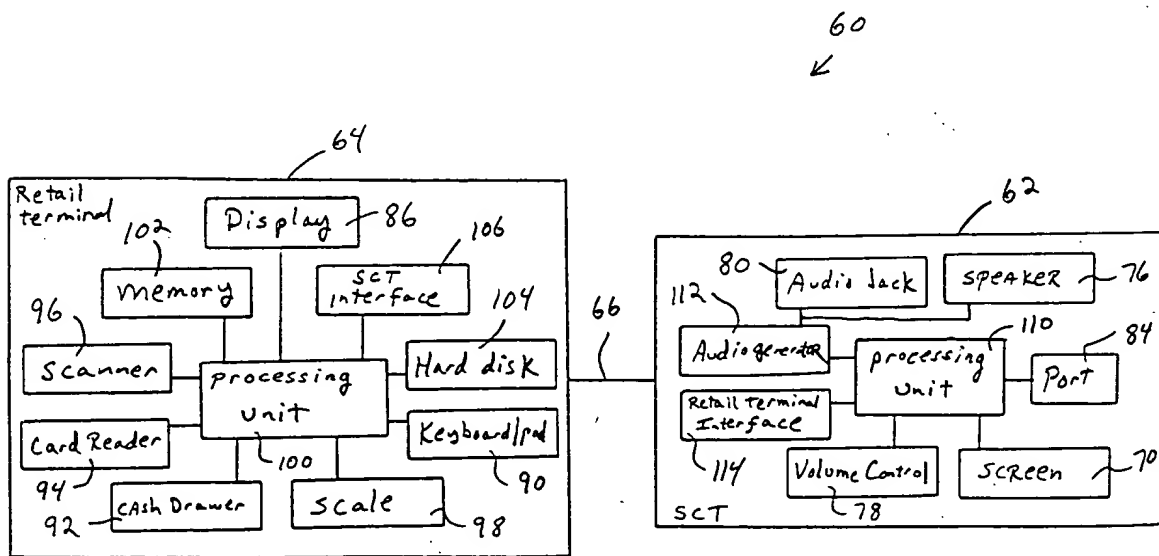 60
64
Retail
terminal
Display
86
102
memory
106
SCT
Interface
96
Scanner
104
Hard disk
processing
unit
100
Card Reader
94
Keyboard/pad
90
92
CAsh Drawer
Scale
98
66
62
80
Audio Jack
SPEAKER
76
112
Audio generator
110
processing
unit
84
Port
Retail Terminal
Interface
114
Volume Control
78
SCReen
70
SCT